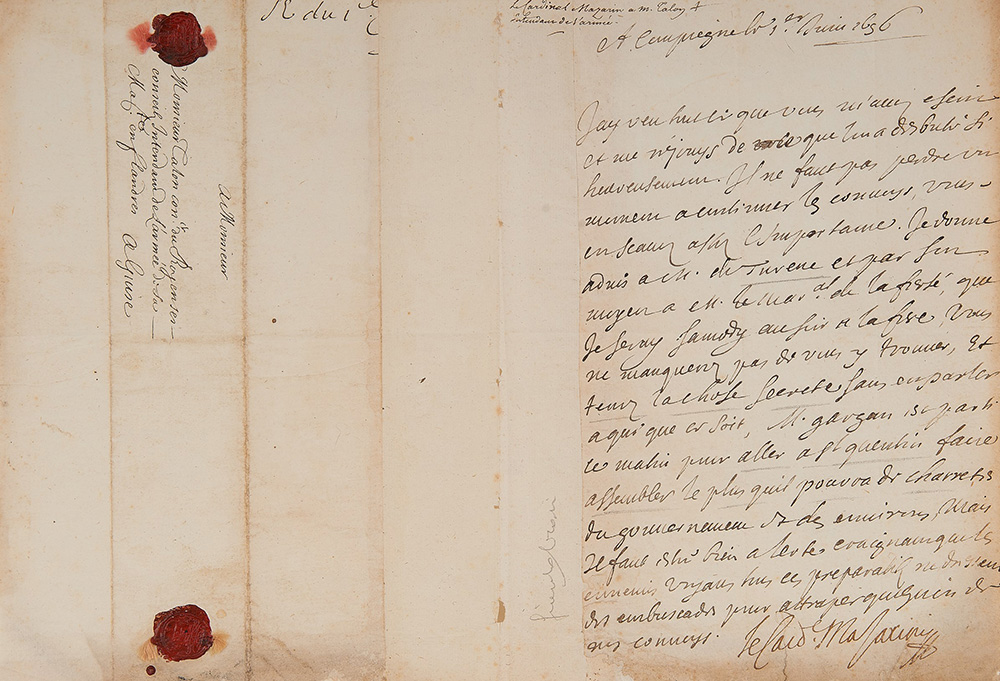 A Monsieur
Monsieur Talon con.er du Roy en son
conseil, Intendant de L'armée de Sa
Maj.té en flandres A Guise
R du 1
Le Cardinal Mazarin a m. Talon
Intendant de l'armée
A Compiegne le 1.er Juin 1656
J'ay veu tout ce que vous m'avez escrit
et me resjouys de que l'on a desbuté si
heureusement. Il ne faut pas perdre un
moment a continuer les convoys, vous
en scavez assez l'importance. Je donne
advis a M. de Turene et par son
moyen a M. le Mar.al de la ferté, que
Je seray samedy au soir a la fere, Vous
ne manquerez pas de vous y trouver, Et
tenez la chose secrete sans en parler
a qui que ce soit, M. gargan est parti
ce matin pour aller a st quentin faire
assembler le plus quil pourra de charretes
du gouvernement et des environs, Mais
Il faut estre bien alertes craignant que les
ennemis voyans tous ces preparatifs ne dressent
des embuscades pour attraper quelqu'un de
nos convoys.
le Card. Mazarini